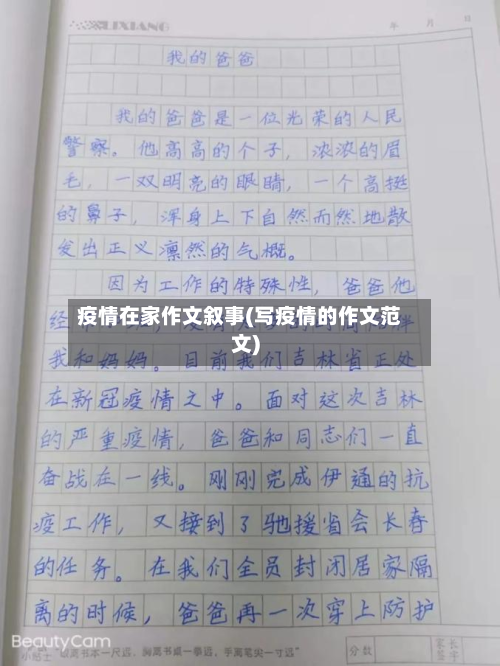 LIXIANG
年 月 日
我的爸爸
我的爸爸是一位光荣的人民
警察。他高高的个子，浓浓的眉
毛，一双明亮的眼睛，一个高挺
的鼻子，浑身上下自然而然地散
发出正义凛然的气概。
因为工作的特殊性，爸爸他
经
疫情在家作文叙事(写疫情的作文范
文)
伴
我和妈妈。目前我们吉林省正处
在新冠疫情之中。面对这次吉林
的严重疫情，爸爸和同志们一直
奋战在一线。刚刚完成伊通的抗
疫工作，又接到了驰援省会长春
的任务。在我们全员封闭居家隔
离的时候，爸爸再一次穿上防护
BeautyCam
小贴士 眼离书本一尺远，胸离书桌一拳远，手离笔尖一寸远"
分数
家长
签字